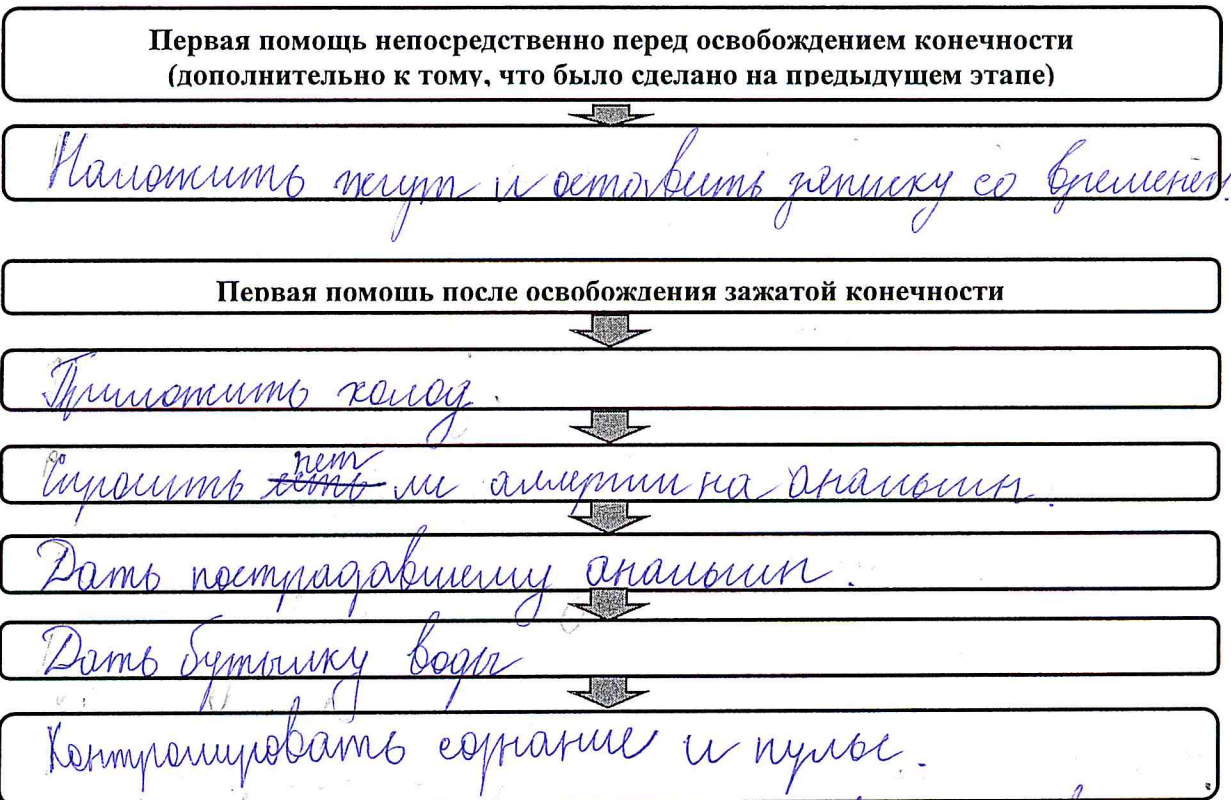 Первая помощь непосредственно перед освобождением конечности
(дополнительно к тому, что было сделано на предыдущем этапе)
Наложить жгут и оставить записку со временем.
Первая помощь после освобождения зажатой конечности
Приложить холод.
Спросить есть нет ли аллергии на анальгин.
Дать пострадавшему анальгин.
Дать бутылку воды
Контролировать сознание и пульс.